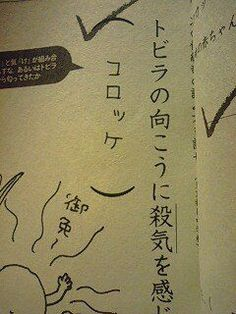 赤ちゃん
トビラの向こうに殺気を感じ
（コロッケ）
と気「け」が組み合
すな、あるいはトビラ
ら匂ってきたか
御免